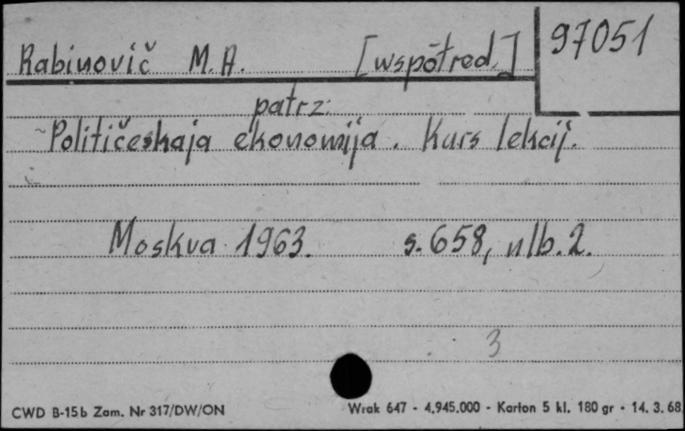 Rabinovič M.A. [współred.] 97051
patrz:
Političeskaja ekonomija. Kurs lekcij.
Moskva 1963. s. 658, nlb. 2.
3
CWD B-15b Zam. Nr 317/DW/ON Wrak 647 - 4.945.000 - Karton 5 kl. 180 gr - 14. 3. 68